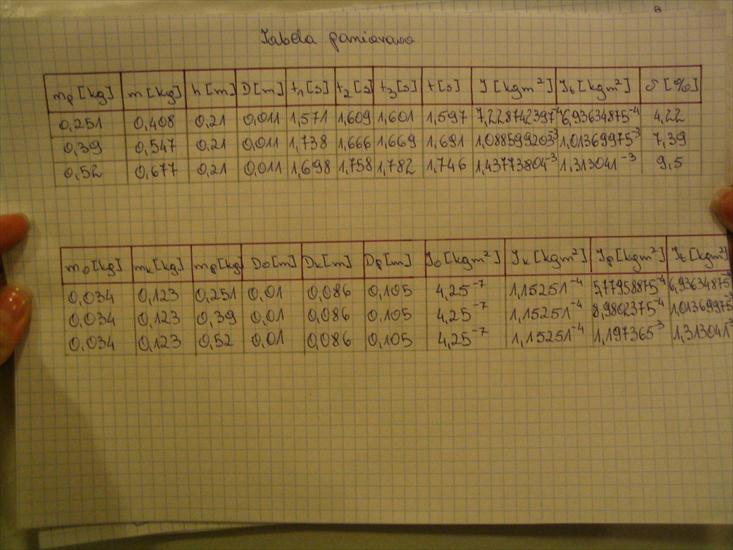 Tabela pomiarowa
mp [kg] m [kg] h [m] D [m] t₁ [s] t₂ [s] t₃ [s] t [s] J [kgm²] Jt [kgm²] δ [%]
0,251 0,408 0,21 0,011 1,571 1,609 1,601 1,597 7,228742397⁻⁴ 6,93634875⁻⁴ 4,22
0,39 0,547 0,21 0,011 1,738 1,666 1,669 1,691 1,088599203⁻³ 1,01369975⁻³ 7,39
0,52 0,677 0,21 0,011 1,698 1,758 1,782 1,746 1,43773804⁻³ 1,313041⁻³ 9,5
mo [kg] mk [kg] mp [kg] Do [m] Dk [m] Dp [m] Jo [kgm²] Jk [kgm²] Jp [kgm²] Jt [kgm²]
0,034 0,123 0,251 0,01 0,086 0,105 4,25⁻⁷ 1,15251⁻⁴ 5,77958875⁻⁴ 6,93634875⁻⁴
0,034 0,123 0,39 0,01 0,086 0,105 4,25⁻⁷ 1,15251⁻⁴ 8,9802375⁻⁴ 1,01369975⁻³
0,034 0,123 0,52 0,01 0,086 0,105 4,25⁻⁷ 1,15251⁻⁴ 1,197365⁻³ 1,313041⁻³